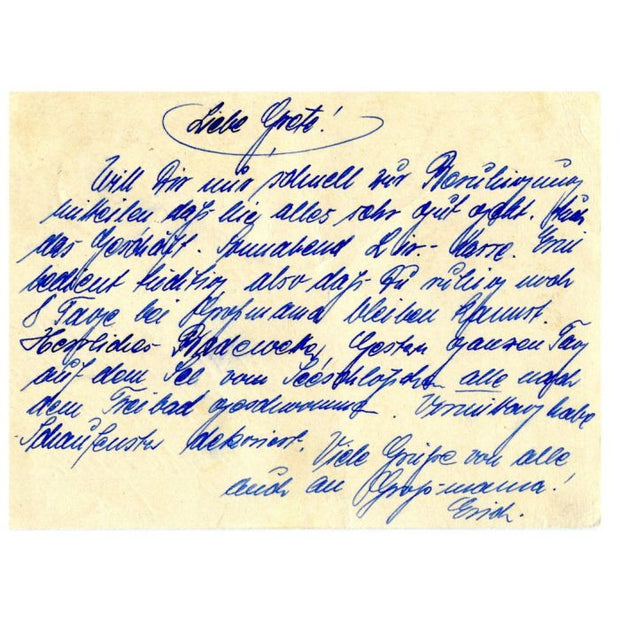 Liebe Grete!
Will Dir nur schnell zur Beruhigung
mitteilen daß hier alles sehr gut geht. Auch
das Geschäft. Sonnabend Kasse.
bedient tüchtig also daß Du ruhig noch
8 Tage bei Großmama bleiben kannst.
Herrliches Badewetter, Gestern ganzen Tag
auf dem See vom Seeschlößchen alle nach
dem Freibad geschwommen. habe
Schaufenster dekoriert. Viele Grüße von alle
auch an Großmama!
Erich.